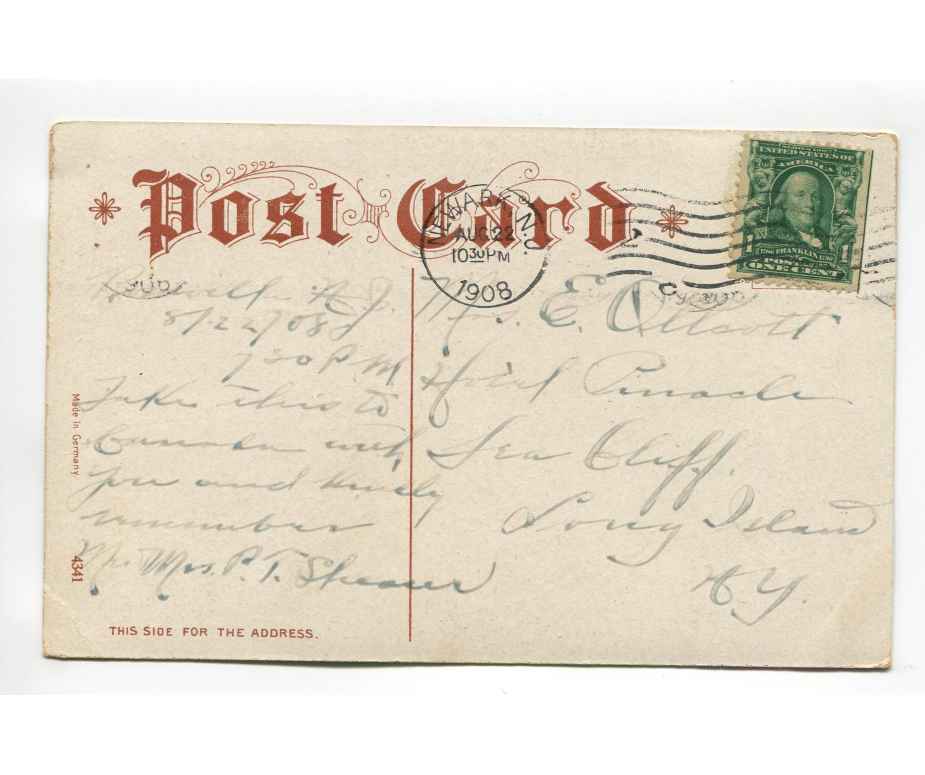 Post Card
NEWARK, N.J.
AUG 22
10 30 PM
1908
UNITED STATES OF
AMERICA
1706 FRANKLIN 1790
POSTAGE
ONE CENT
N.J.
8/22/08
7 30 P.M.
Take this to
Canada with
you and kindly
remember
Mr. Mrs. P. T. Shearer
Mrs. E. Ollcott
Hotel Pinacle
Sea Cliff.
Long Island
N.Y.
Made in Germany
4341
THIS SIDE FOR THE ADDRESS.